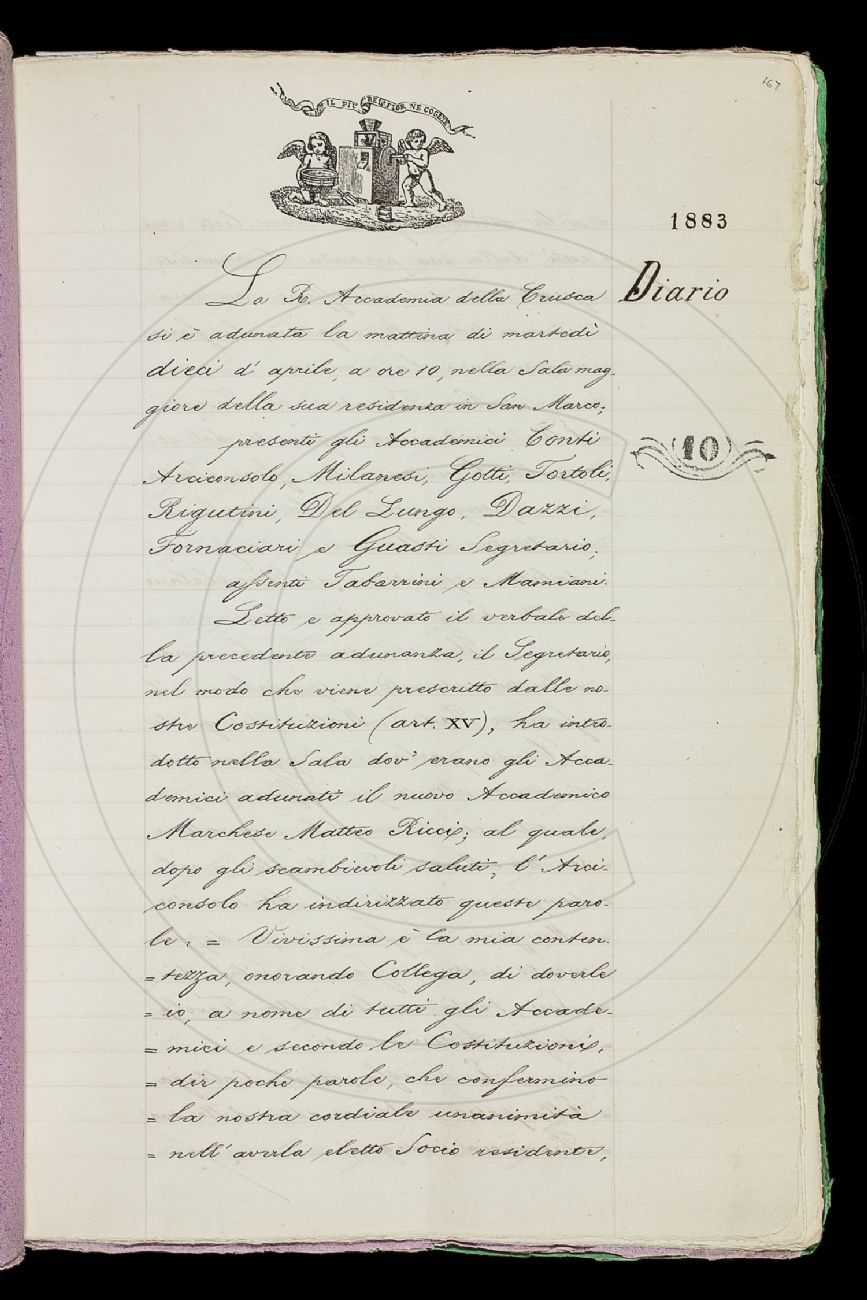 167
IL PIÙ BEL FIOR NE COGLIE
1883
Diario
10
La R. Accademia della Crusca
si è adunata la mattina di martedì
dieci d' aprile, a ore 10, nella Sala mag-
giore della sua residenza in San Marco;
presenti gli Accademici Conti
Arciconsolo, Milanesi, Gotti, Tortoli,
Rigutini, Del Lungo, Dazzi,
Fornaciari e Guasti Segretario;
assenti Tabarrini e Mamiani.
Letto e approvato il verbale del-
la precedente adunanza, il Segretario,
nel modo che viene prescritto dalle no-
stre Costituzioni (art. XV), ha intro-
dotto nella Sala dov' erano gli Acca-
demici adunati il nuovo Accademico
Marchese Matteo Ricci; al quale,
dopo gli scambievoli saluti, l' Arci-
consolo ha indirizzato queste paro-
le: = Vivissima è la mia conten-
= tezza, onorando Collega, di doverle
= io, a nome di tutti gli Accade-
= mici e secondo le Costituzioni,
= dir poche parole, che confermino
= la nostra cordiale unanimità
= nell' averla eletto Socio residente,